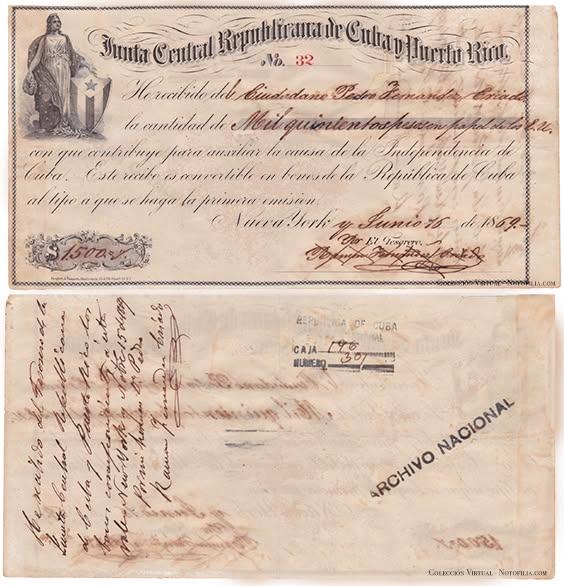 Junta Central Republicana de Cuba y Puerto Rico.
No. 32
He recibido del Ciudadano Pedro Fernandez Criado
la cantidad de Mil quinientos pesos en papel de los E.U.
con que contribuye para auxiliar la causa de la Independencia de
Cuba. Este recibo es convertible en bonos de la República de Cuba
al tipo a que se haga la primera emision.
Nueva York y Junio 16 de 1869.
Por El Tesorero,
$1500
Ramon Fernandez Criado
COLECCIÓN VIRTUAL - NOTOFILIA.COM
He recibido del Tesorero de la
Junta Central Republicana
de Cuba y Puerto Rico los
bonos correspondientes a este
New York y
Pedro
Ramon Fernandez Criado
REPUBLICA DE CUBA
CAJA 196
NUMERO 30
ARCHIVO NACIONAL
COLECCIÓN VIRTUAL - NOTOFILIA.COM